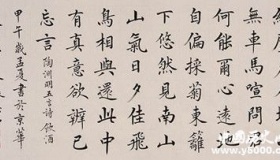 無車馬喧問君
何能爾心遠地
自偏採菊東籬
下悠然見南山
山氣日夕佳飛
鳥相與還此中
有真意欲辨已
忘言 陶淵明五言詩 飲酒
甲午歲孟夏書於京華